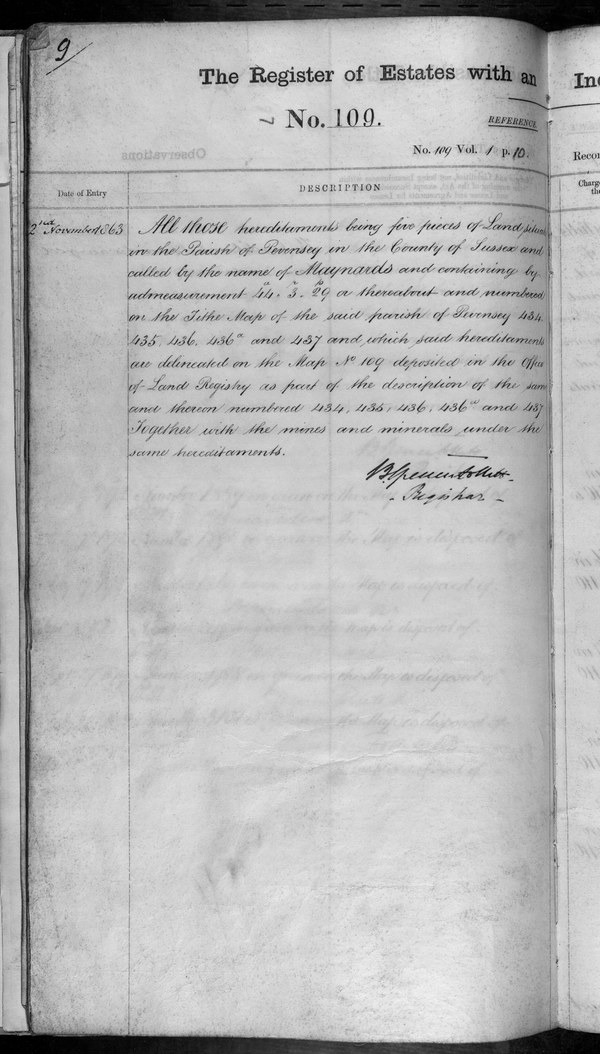 9
The Register of Estates with an
No. 109.
REFERENCE
No. 109 Vol. 1 p. 10.
Observations
Date of Entry
DESCRIPTION
2nd November 1863
All those hereditaments being five pieces of Land situate
in the Parish of Pevensey in the County of Sussex and
called by the name of Maynards and containing by
admeasurement 44a. 3r. 29p or thereabout and numbered
on the Tithe Map of the said parish of Pevensey 434,
435, 436, 436a and 437 and which said hereditaments
are delineated on the Map No 109 deposited in the Office
of Land Registry as part of the description of the same
and thereon numbered 434, 435, 436, 436a and 437
Together with the mines and minerals under the
same hereditaments.
Registrar
In
Recor
Charg
the